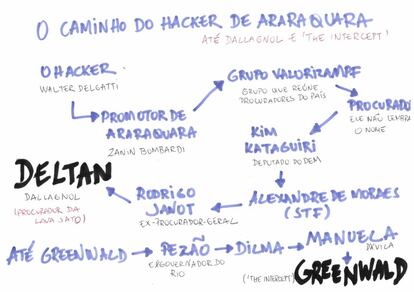 O CAMINHO DO HACKER DE ARARAQUARA
ATÉ DALLAGNOL E 'THE INTERCEPT'
O HACKER
WALTER DELGATTI
PROMOTOR DE
ARARAQUARA
ZANIN BOMBARDI
GRUPO VALORIZAMPF
GRUPO QUE REÚNE
PROCURADORES DO PAÍS
PROCURADO
ELE NÃO LEMBRA
O NOME
KIM
KATAGUIRI
DEPUTADO DO DEM
ALEXANDRE DE MORAES
(STF)
RODRIGO
JANOT
EX-PROCURADOR-GERAL
DELTAN
DALLAGNOL
(PROCURADOR DA
LAVA JATO)
ATÉ GREENWALD
PEZÃO
EX GOVERNADOR DO
RIO
DILMA
MANUELA
D'ÁVILA
('THE INTERCEPT')
GREENWALD